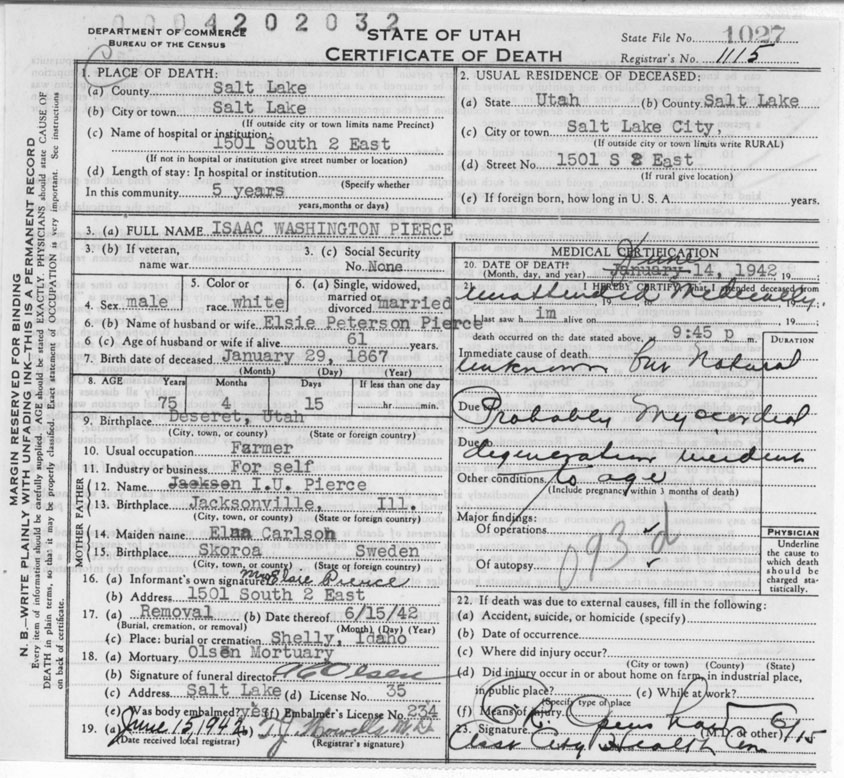 0004202032
DEPARTMENT OF COMMERCE
BUREAU OF THE CENSUS
STATE OF UTAH
CERTIFICATE OF DEATH
State File No. 1027
Registrar's No. 1115
MARGIN RESERVED FOR BINDING
N. B.—WRITE PLAINLY WITH UNFADING INK—THIS IS A PERMANENT RECORD
Every item of information should be carefully supplied. AGE should be stated EXACTLY. PHYSICIANS should state CAUSE OF
DEATH in plain terms, so that it may be properly classified. Exact statement of OCCUPATION is very important. See instructions
on back of certificate.
1. PLACE OF DEATH:
(a) County Salt Lake
(b) City or town Salt Lake
(If outside city or town limits name Precinct)
(c) Name of hospital or institution:
1501 South 2 East
(If not in hospital or institution give street number or location)
(d) Length of stay: In hospital or institution
(Specify whether
In this community 5 years
years, months or days)
2. USUAL RESIDENCE OF DECEASED:
(a) State Utah (b) County Salt Lake
(c) City or town Salt Lake City,
(If outside city or town limits write RURAL)
(d) Street No. 1501 S 2 East
(If rural give location)
(e) If foreign born, how long in U. S. A. years.
3. (a) FULL NAME ISAAC WASHINGTON PIERCE
3. (b) If veteran,
name war
3. (c) Social Security
No. None
4. Sex male
5. Color or
race white
6. (a) Single, widowed,
married or
divorced married
6. (b) Name of husband or wife Elsie Peterson Pierce
6 (c) Age of husband or wife if alive 61 years.
7. Birth date of deceased January 29, 1867
(Month) (Day) (Year)
8. AGE Years Months Days If less than one day
75 4 15 hr. min.
9. Birthplace Deseret, Utah
(City, town, or county) (State or foreign country)
10. Usual occupation Farmer
11. Industry or business For self
FATHER
12. Name Jackson I.U. Pierce
13. Birthplace Jacksonville, Ill.
(City, town, or county) (State or foreign country)
MOTHER
14. Maiden name Elna Carlson
15. Birthplace Skoroa Sweden
(City, town, or county) (State or foreign country)
16. (a) Informant's own signature Mrs Elsie Pierce
(b) Address 1501 South 2 East
17. (a) Removal (b) Date thereof 6/15/42
(Burial, cremation, or removal) (Month) (Day) (Year)
(c) Place: burial or cremation Shelly, Idaho
18. (a) Mortuary Olsen Mortuary
(b) Signature of funeral director Olsen
(c) Address Salt Lake (d) License No. 35
(e) Was body embalmed? yes (f) Embalmer's License No. 234
19. (a) June 15, 1942 (b) M.D.
(Date received local registrar) (Registrar's signature)
MEDICAL CERTIFICATION
June
20. DATE OF DEATH:
(Month, day, and year) January 14, 1942 19
21. I HEREBY CERTIFY, That I attended deceased from
unattended Medically
19 19
I last saw h im alive on 19
death occurred on the date stated above, at 9:45 p m.
DURATION
Immediate cause of death
unknown but Natural
Due to Probably Myocardial
Due to degeneration incident
Other conditions to age
(Include pregnancy within 3 months of death)
Major findings:
Of operations
Of autopsy
093 d
PHYSICIAN
Underline
the cause to
which death
should be
charged statistically.
22. If death was due to external causes, fill in the following:
(a) Accident, suicide, or homicide (specify)
(b) Date of occurrence
(c) Where did injury occur?
(City or town) (County) (State)
(d) Did injury occur in or about home on farm in industrial place,
in public place? (e) While at work?
(Specify type of place
(f) Means of injury
23. Signature (M.D. or other) 6/15
Asst City Health Com